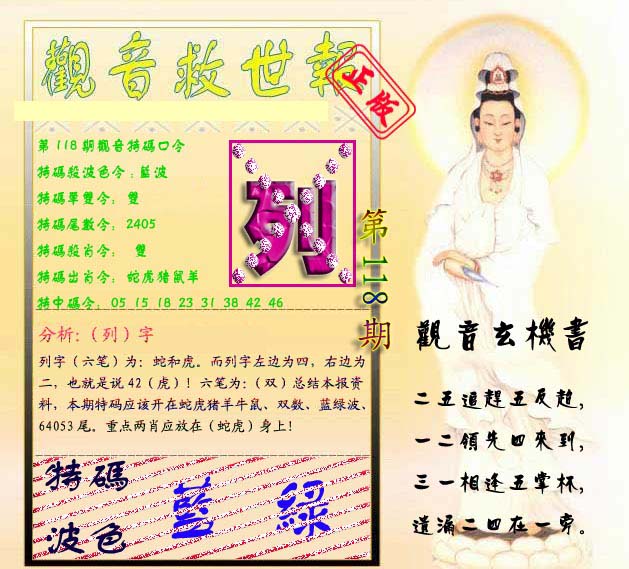 觀音救世報
正版
第118期觀音特碼口令
特碼殺波色令：藍波
特碼單雙令： 雙
特碼尾數令： 2405
特碼殺肖令： 雙
特碼出肖令： 蛇虎猪鼠羊
特中碼令： 05 15 18 23 31 38 42 46
列
第118期
分析:（列）字
列字（六笔）为：蛇和虎。而列字左边为四，右边为
二，也就是说42（虎）！六笔为：（双）总结本报资
料，本期特码应该开在蛇虎猪羊牛鼠、双数、蓝绿波、
64053尾。重点两肖应放在（蛇虎）身上！
特碼
波色
藍 綠
觀音玄機書
二五追趕五反趋，
一二領先四來到，
三一相逢五掌杯，
遗漏二四在一旁。